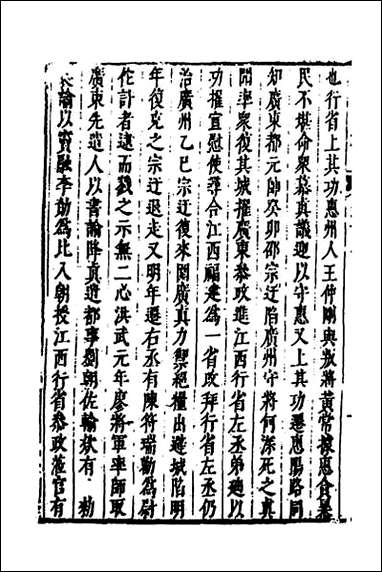 也行省上其功惠州人王仲剛與叛將黃常據惠合暴
民不堪命衆慕真議迎以守惠又上其功遷惠陽路同
知廣東都元帥癸卯邵宗迂陷廣州守將何深死之真
閧率衆復其城擢廣東叅政進江西行省左丞弟廸以
功擢宣慰使尋合江西福建爲一省政拜行省左丞仍
治廣州乙巳宗迂復來圍廣真力禦絕糧出避城陷明
年復克之宗迂退走又明年遷右丞有陳符瑞勸爲尉
佗計者遽而戮之示無二心洪武元年廖將軍率師取
廣東先遣人以書諭降真遣都事劉朝佐輸欵有　勑
諭以竇融李勣爲比入朝授江西行省叅政蒞官有